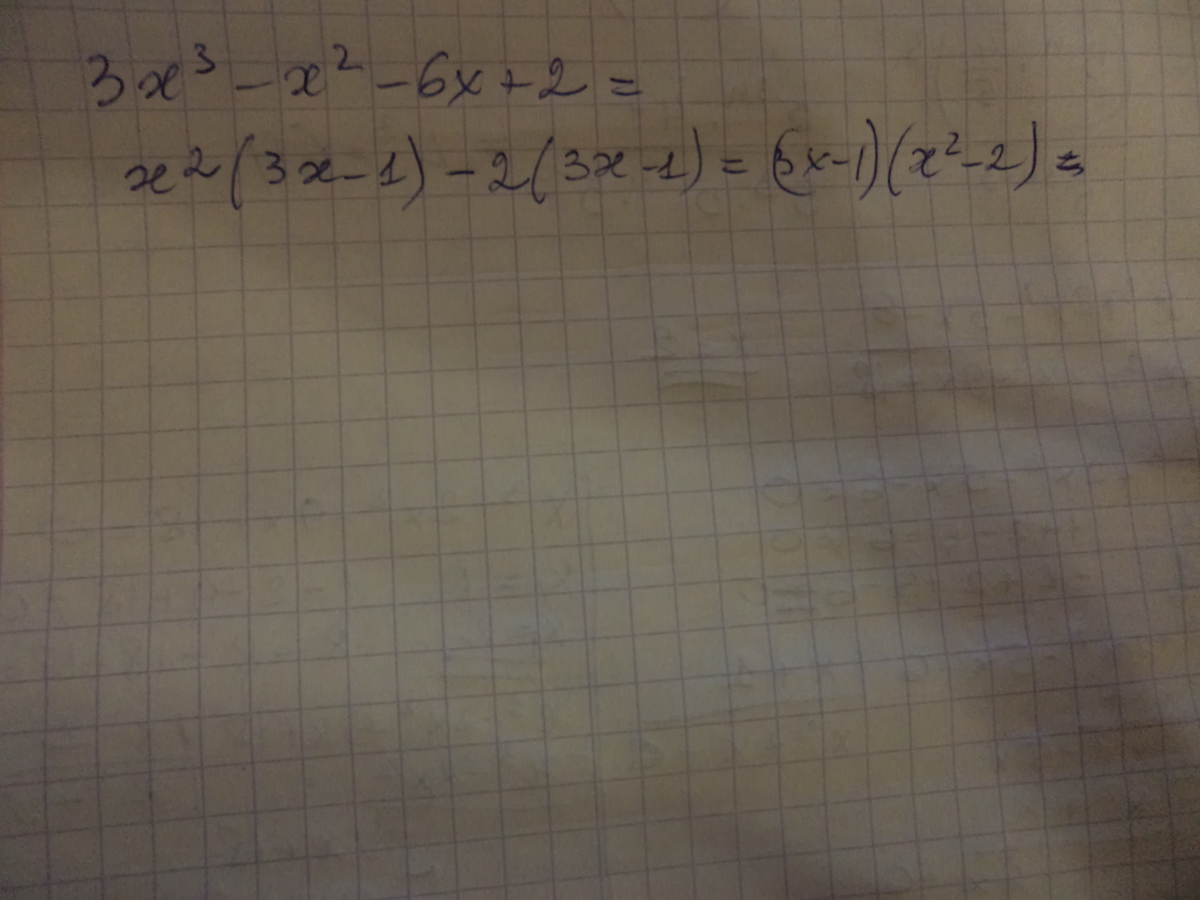 3x³ - x² - 6x + 2 =
x²(3x - 1) - 2(3x - 1) = (3x - 1)(x² - 2) =